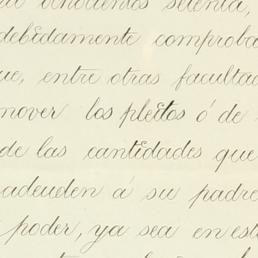 ochocientos setenta,
debidamente comproba
ue, entre otras facultad
mover los pleitos ó de
de las cantidades que
adeuden á su padre
poder, ya sea en est